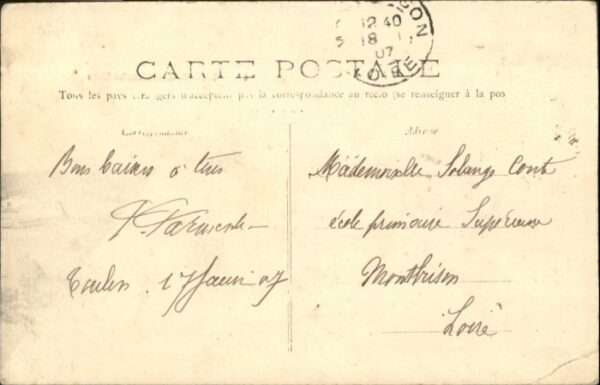 12 40
18
07
CARTE POSTALE
Tous les pays étrangers n'acceptent pas la correspondance au recto (se renseigner à la pos
Correspondance
Adresse
Bons baisers à tous
Toulon. 17 Janv 07
Mademoiselle Solange Cont
école primaire Supérieure
Montbrison
Loire